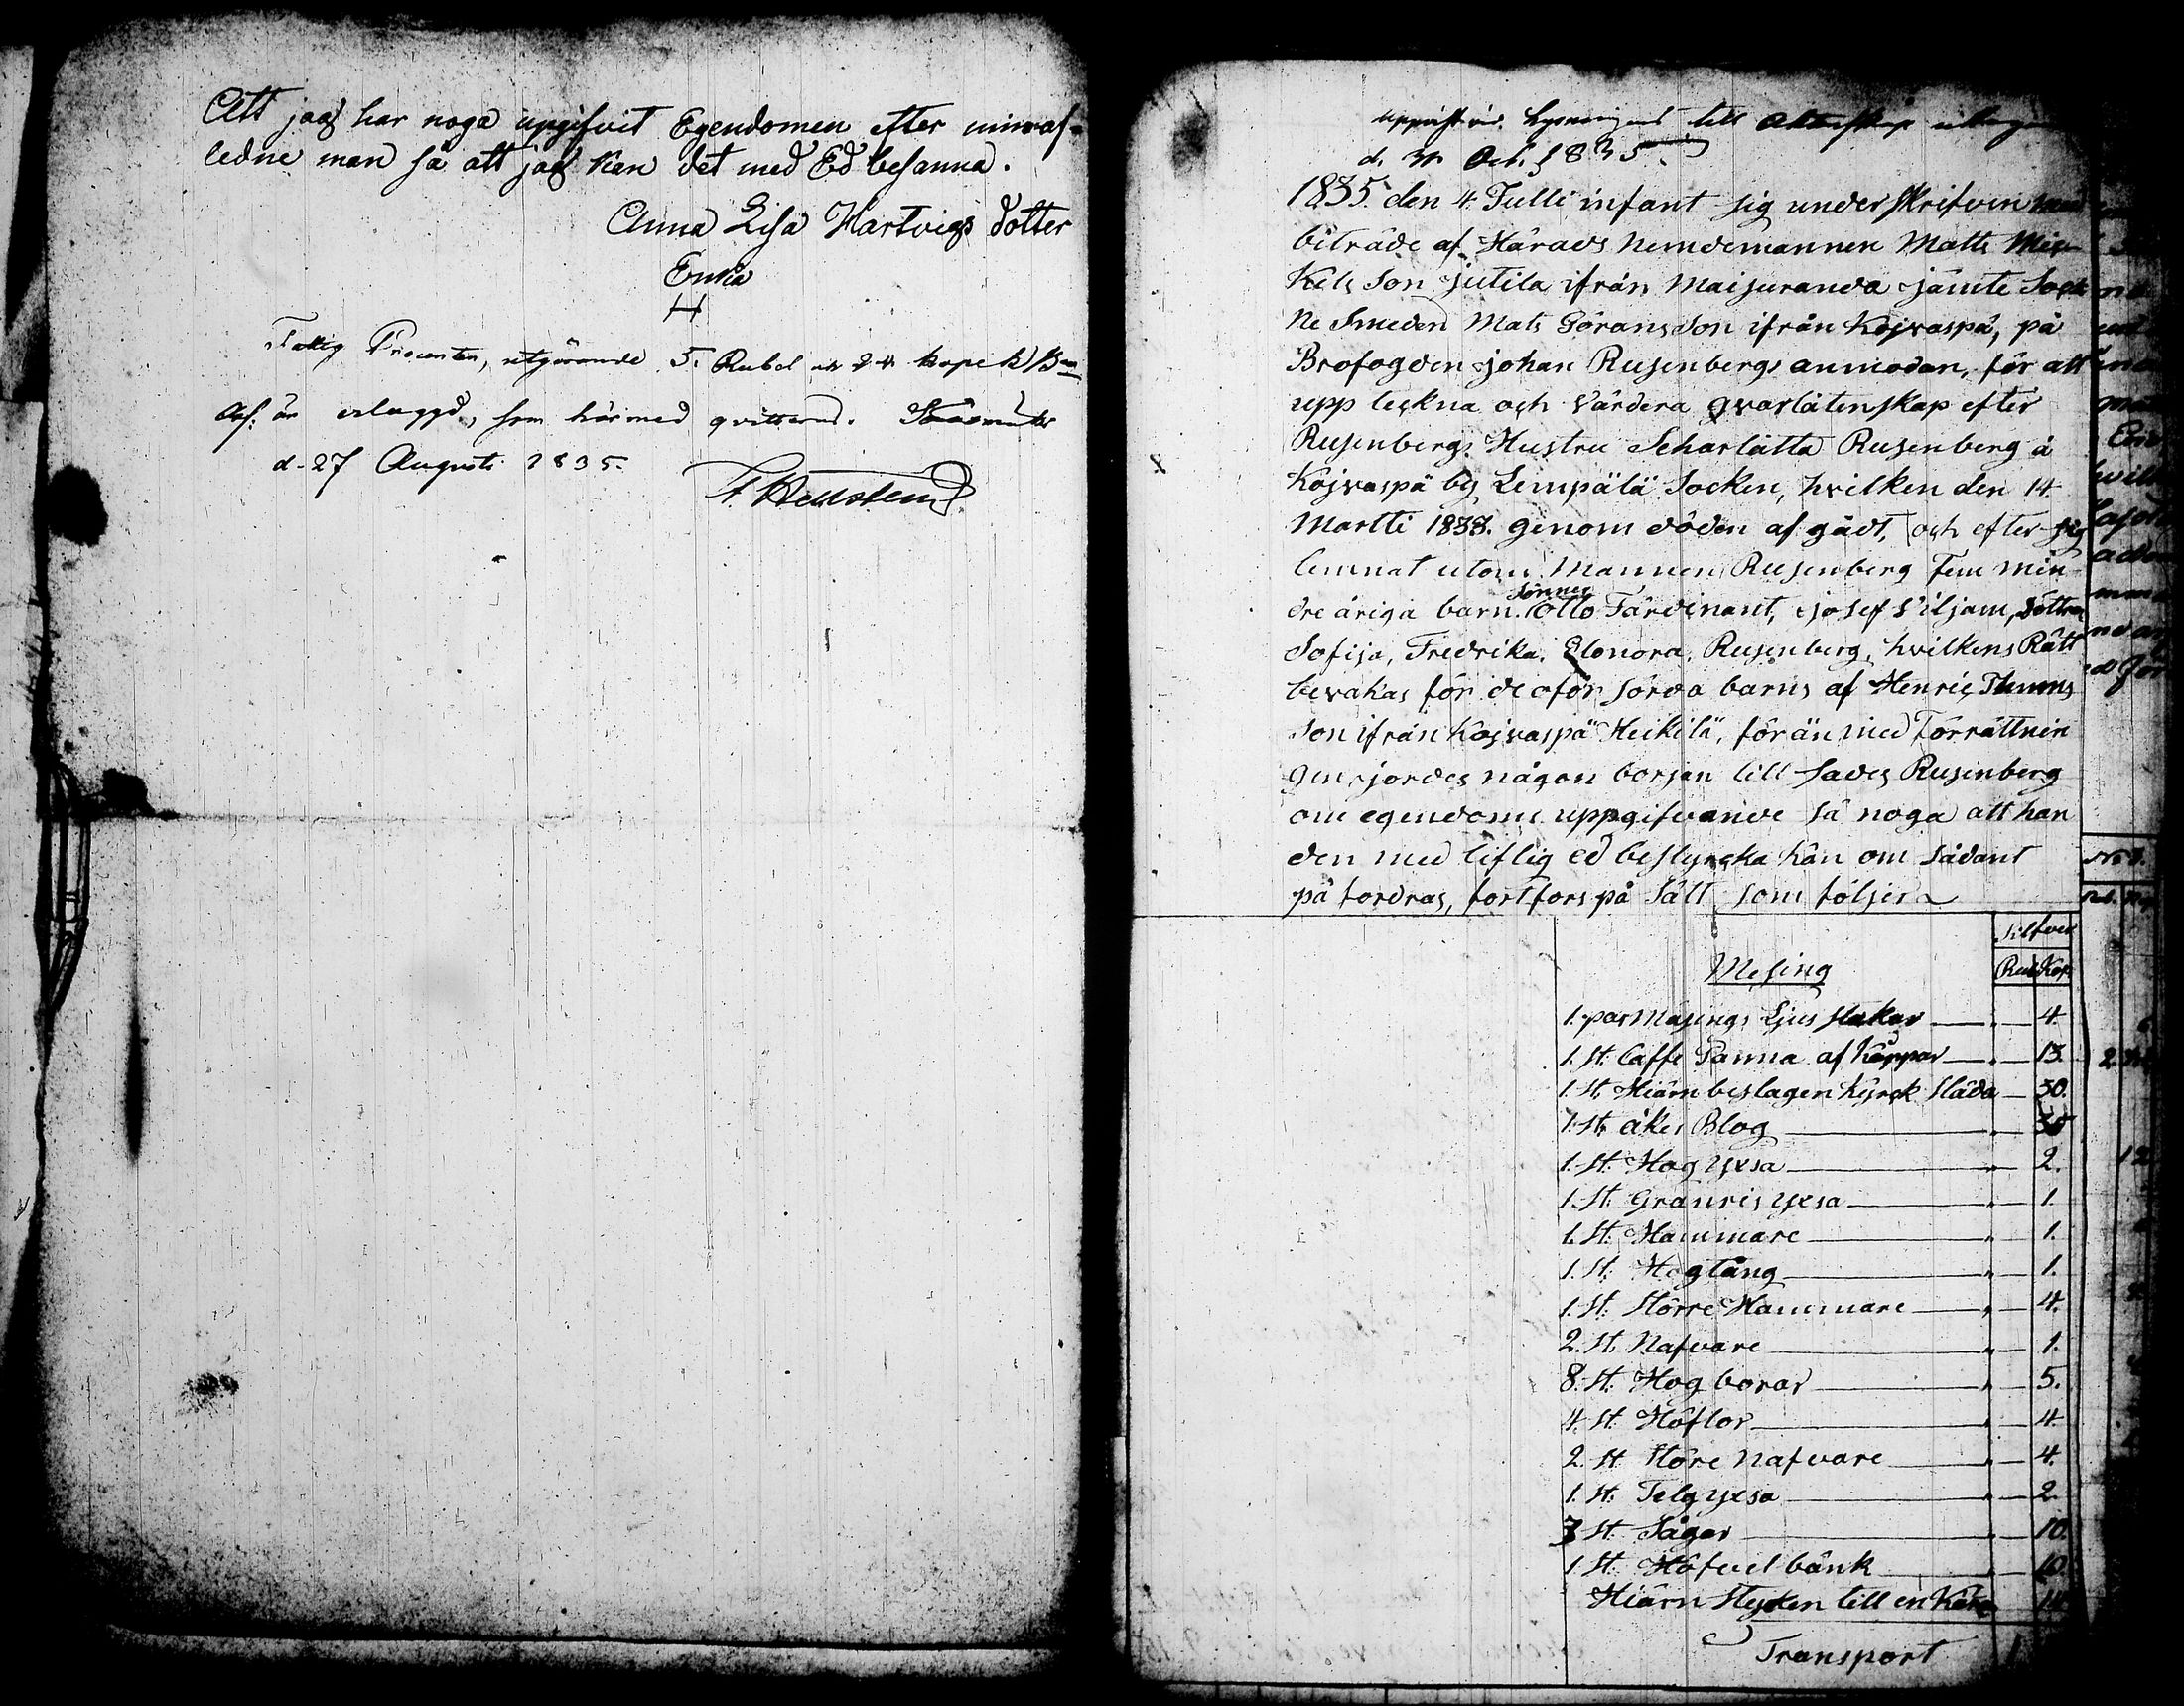 Att jag har noga upgifvit Egendomen efter min af-
ledne man så att jag kan det med Ed besanna.
Anna Lisa Hartvigs dotter
Enka
H
Fattig Procenten, utgörande 5. Rubel 24 kopek B
Ass: är erlaggd, som härmed qvitteras.
d. 27 Augusti 1835.
F. Hellstenius
lysningens till Aktenskap
d. Oct. 1835.
1835 den 4 Julli infant sig underskrifven med
biträde af Härads Nemdemannen Matts Mic
kels Son Jutila ifrån Maisuranda jämte Sock
ne Smeden Mats Görans Son ifrån Kojvaspä, på
Brofogden Johan Rusenbergs anmodan, för att
upp teckna och värdera qvarlåtenskap efter
Rusenbergs Hustru Scharlåtta Rusenberg å
Kojvaspä by Lempälä Socken, hvilken den 14
Martti 1833. genom döden af gådt, och efter sig
lemnat utom Mannen Rusenberg Fem min
dre åriga barn. Sönner Otto Färdinant, Josef Viljam, döttrar
Sofija, Fredrika, Elonora, Rusenberg, hvilkens Rätt
bevakas för de oför sörda barns af Henric Thums
Son ifrån Kojvaspä Heikilä, för än med Förrättnin
gen sjordes någon borjan till sades Rusenberg
om egendoms uppgifvande så noga att han
den med liflig ed bestyrcka kan om sådant
på fordras, fortfors på sått som följer
Silfver
Mesing
Rub Kop
1. par Mäsings Ljus stakar — 4.
1. St. Caffe Panna af Koppar — 13.
1. St. Hiärn beslagen Kyrck släda — 30.
1. St. åker Blog — 35
1. St. Hog yxsa — 2.
1. St. Granris yxsa — 1.
1. St. Hammare — 1.
1. St. Hogtång — 1.
1. St. Större Hammare — 4.
2. St. Nafvare — 1.
8. St. Hog borar — 5.
4. St. Höflor — 4.
2. St. Störe Nafvare — 4.
1. St. Telg yxsa — 2.
3 St. Sågar — 10.
1 St. Höfvel bänk — 10.
Hiärn Stycken till en Kära
Transport